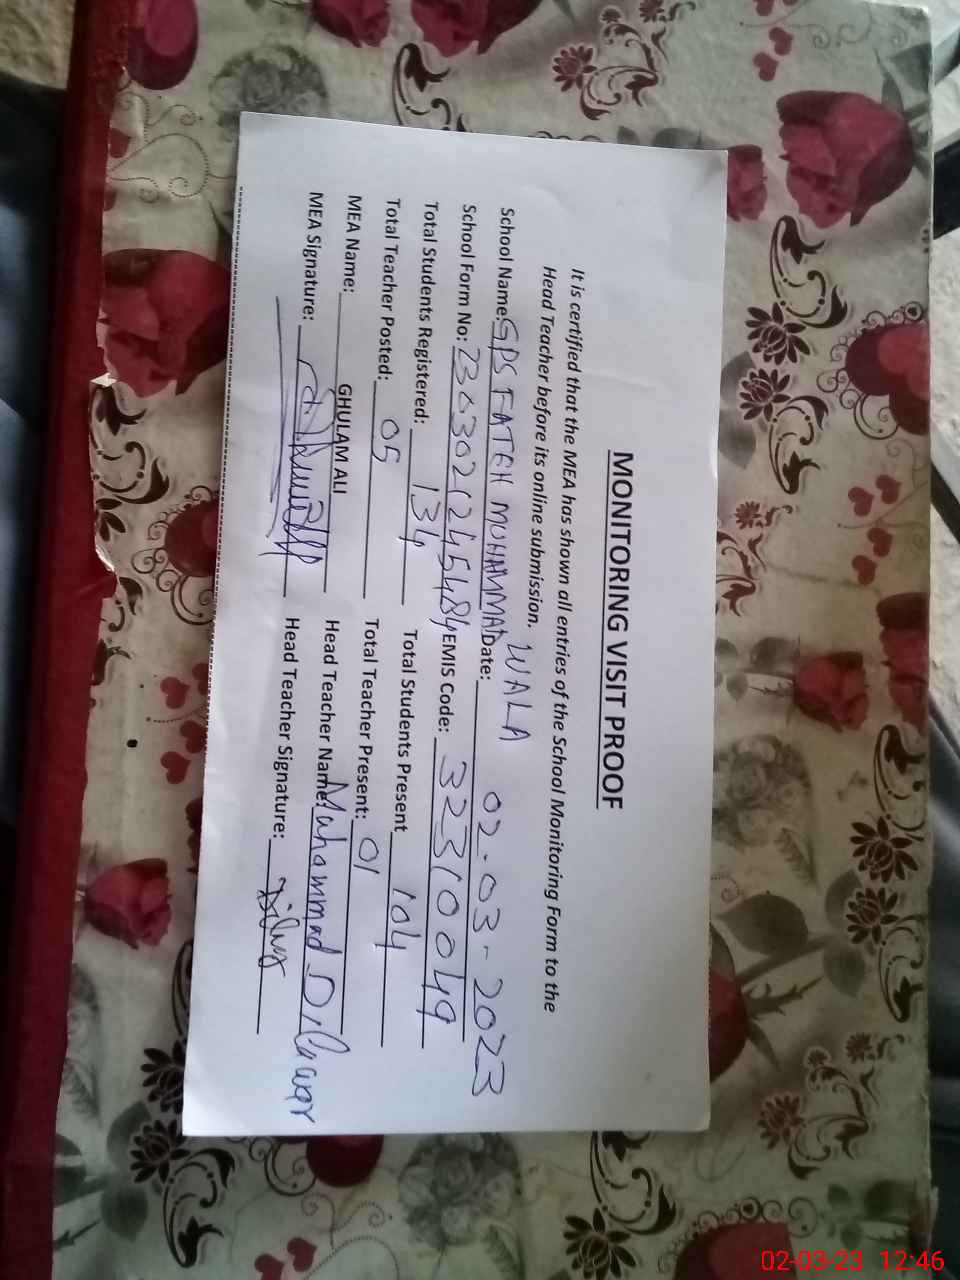 MONITORING VISIT PROOF
It is certified that the MEA has shown all entries of the School Monitoring Form to the
Head Teacher before its online submission.
School Name: GPS FATEH MUHAMMAD WALA Date: 02-03-2023
School Form No: 2303021245484 EMIS Code: 32310049
Total Students Registered: 134 Total Students Present 104
Total Teacher Posted: 05 Total Teacher Present: 01
MEA Name: GHULAM ALI Head Teacher Name: Muhammad Dilawar
MEA Signature: Head Teacher Signature:
02-03-23 12:46